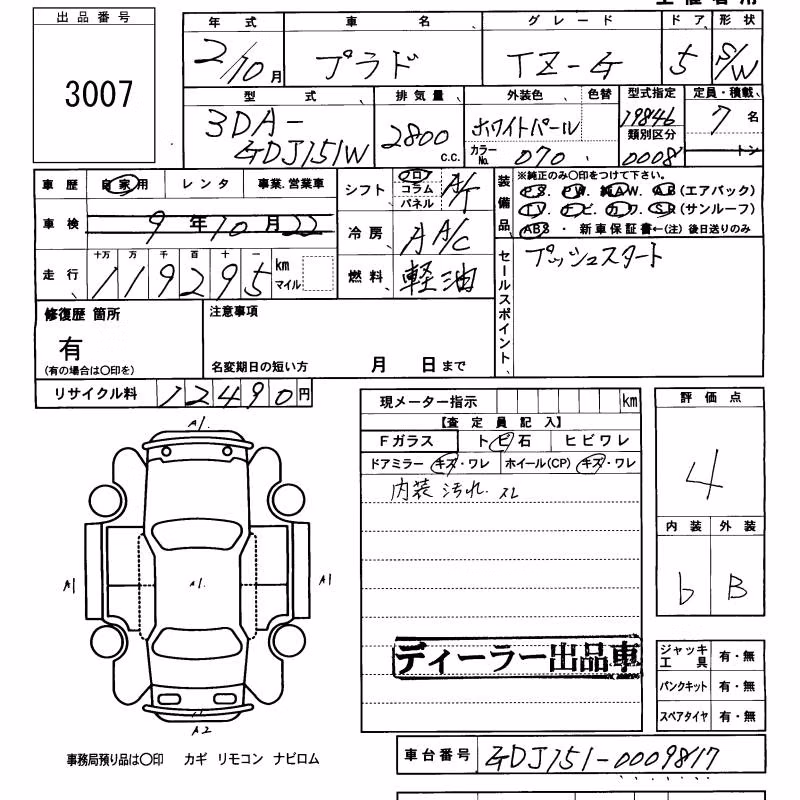 出品番号
3007
年式 車名 グレード ドア 形状
2/10月 プラド TZ-G 5 S/W
型式 排気量 外装色 色替 型式指定 定員・積載
3DA-GDJ151W 2800c.c. ホワイトパール カラーNo. 070 19846 類別区分 0008 7名 トン
車歴 自家用 レンタ 事業.営業車 シフト フロ コラム パネル A/T
装備品 ※純正のみ〇印をつけて下さい。
PS. PW. 純AW. AB(エアバック)
TV. ナビ. カワ. SR(サンルーフ)
ABS・新車保証書←(注)後日送りのみ
車検 9年10月22 冷房 AA/C
走行 十万 万 千 百 十 一
119295 km マイル 燃料 軽油
セールスポイント プッシュスタート
修復歴 箇所
有
(有の場合は〇印を)
注意事項
名変期日の短い方 月 日まで
リサイクル料 12490円
現メーター指示 km
【査定員記入】
Fガラス トビ石 ヒビワレ
ドアミラー キズ・ワレ ホイール(CP) キズ・ワレ
内装 汚れ. スレ
評価点
4
内装 外装
b B
A1.
A1 A1. A1
A2
ディーラー出品車
ジャッキ工具 有・無
パンクキット 有・無
スペアタイヤ 有・無
事務局預り品は〇印 カギ リモコン ナビロム
車台番号 GDJ151-0009817